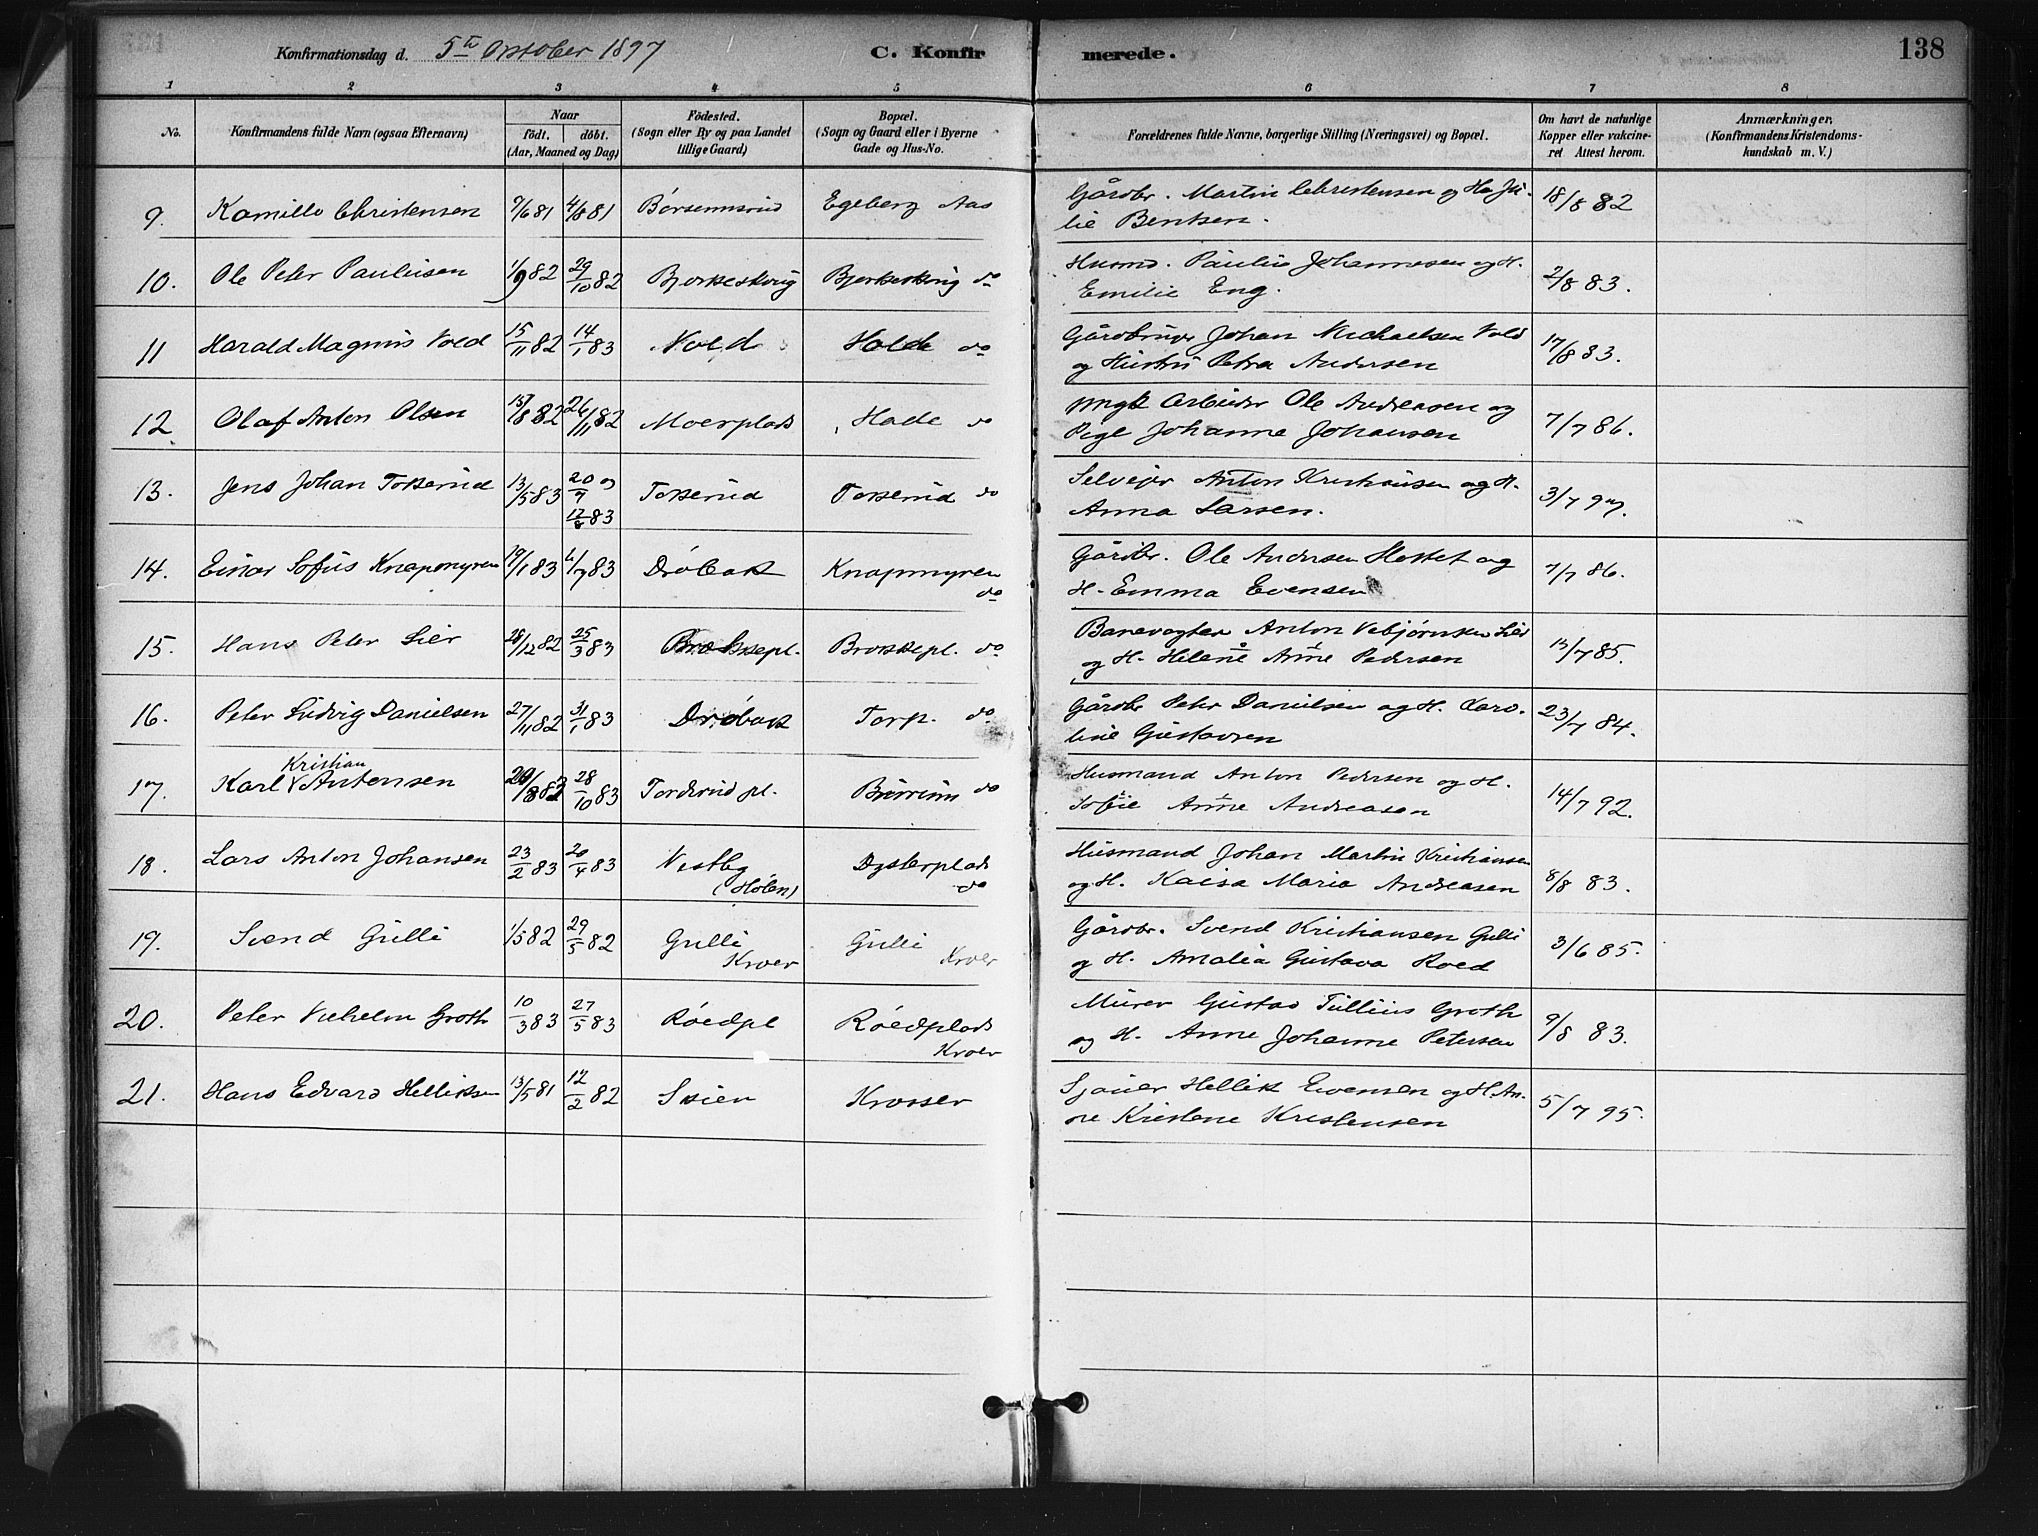 Konfirmationsdag d. 5te Oktober 1897 C. Konfirmerede. 138
1 2 3 4 5 6 7 8
No. Konfirmandens fulde Navn (ogsaa Efternavn) Naar födt. döbt. (Aar, Maaned og Dag) Födested. (Sogn eller By og paa Landet tillige Gaard) Bopæl. (Sogn og Gaard eller i Byerne Gade og Hus-No. Forældrenes fulde Navne, borgerlige Stilling (Næringsvei) og Bopæl. Om havt de naturlige Kopper eller vakcineret Attest herom. Anmærkninger, (Konfirmandens Kristendomskundskab m. V.)
9. Kamillo Christensen 7/6 81 4/8 81 Børsumsrud Egeberg Aas Gårdbr. Martin Christensen og H. Julie Bentsen. 18/8 82
10. Ole Peter Paulusen 1/9 82 29/10 82 Bjørkeskoug Bjerkeskoug do Husmd. Paulus Johannesen og H. Emilie Eng. 2/8 83.
11 Harald Magnus Vold 15/11 82 14/1 83 Vold Holde do Gårdbruger Johan Michaelsen Vold og Hustru Petra Andersen 17/8 83.
12 Olaf Anton Olsen 15/8 82 26/11 82 Moerplads Hade do Ungk Arbeider Ole Andreasen og Pige Johanne Johansen 7/7 86.
13. Jens Johan Tokserud 13/5 83 20/7 og 12/8 83 Tokserud Tokserud do Selveier Anton Kristiansen og H. Anna Larsen. 3/7 97.
14. Einar Sofus Knapmyren 19/1 83 4/7 83 Drøbak Knapmyren do Gårdbr. Ole Andersen Hestet og H. Emma Evensen 7/7 86.
15. Hans Peter Lier 28/12 82 25/3 83 Brækkepl. Brækkepl. do Banevogter Anton Vebjørnsen Lier og H. Helene Anne Pedersen 13/7 85.
16. Peter Ludvig Danielsen 27/11 82 31/1 83 Drøbak Torp. do Gårdbr Peter Danielsen og H. Karoline Gustavsen 23/7 84.
17. Karl Kristian Antonsen 29/8 83 28/10 83 Torderud pl. Burrum do Husmand Anton Pedersen og H. Sofie Anne Andreasen 14/7 92.
18. Lars Anton Johansen 23/2 83 20/4 83 Vestby (Hølen) Dysterplads do Husmand Johan Martin Kristiansen og H. Kaisa Maria Andreasen 8/8 83.
19. Svend Gulli 1/5 82 29/5 82 Gulli Kroer Gulli Kroer Gårdbr. Svend Kristiansen Gulli og H. Amalia Gustava Roed 3/6 85.
20. Peter Vilhelm Groth 10/3 83 27/5 83 Røedpl Røedplads Kroer Murer Gustav Tullius Groth og H. Anne Johanne Petersen 9/8 83.
21. Hans Edvard Helliksen 13/5 81 12/2 82 Skien Krosser Sjauer Hellik Evensen og H. Anne Kristene Kristensen 5/7 95.